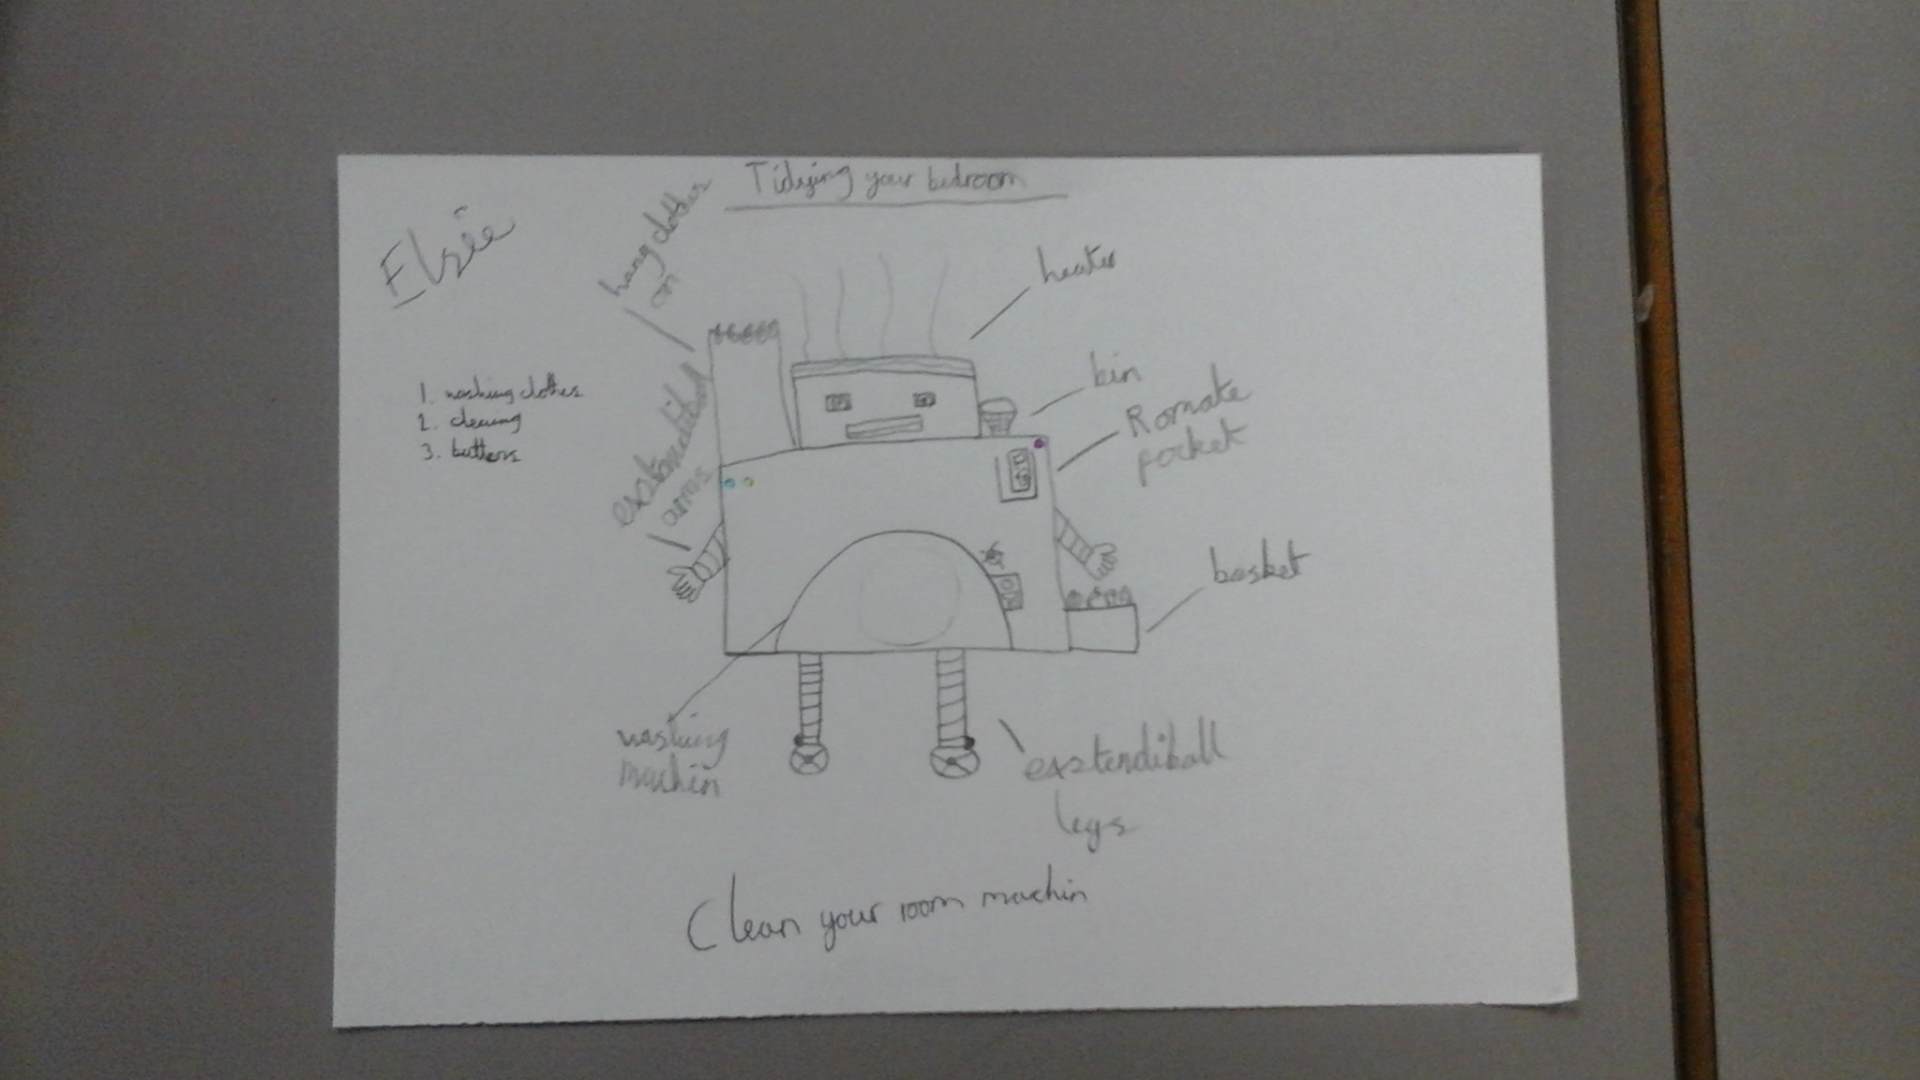 Tidying your bedroom
Elsie
hang clothes
on
heater
bin
Romate
pocket
1. washing clothes
2. cleaning
3. buttons
arms
basket
washing
machin
exstendiball
legs
Clean your room machin